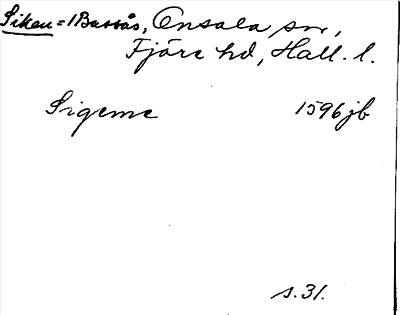 Siken = 1 Bassås, Onsala sn,
Fjäre hd, Hall. l.
Sigeme 1596 jb
s. 31.